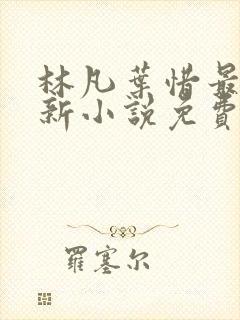 林凡葉惜最
新小說免費
羅塞尔